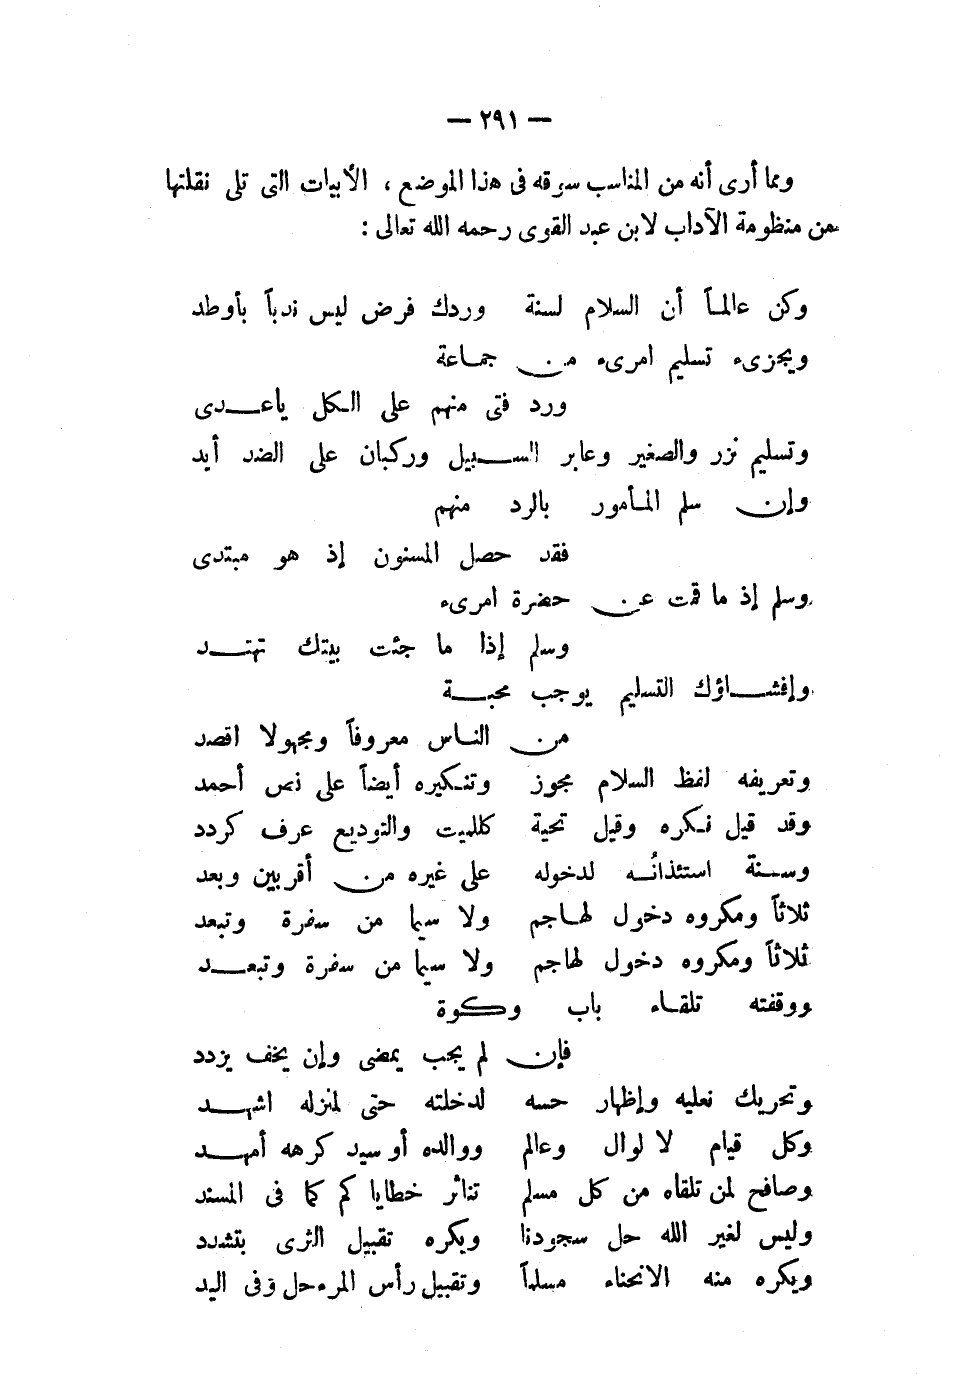 — ٢٩١ —
ومما أرى أنه من المناسب سوقه فى هذا الموضع ، الأبيات التى تلى نقلتها
من منظومة الآداب لابن عبد القوى رحمه الله تعالى :
وكن عالمـاً أن السلام لسنة وردك فرض ليس ندباً بأوطد
ويجزىء تسليم امرىء من جمـاعة
ورد فتى منهم على الـكل ياعـــدى
وتسليم نزر والصغير وعابر الســـبيل وركبان على الضد أيد
وإن سلم المـأمور بالرد منهم
فقد حصل المسنون إذ هو مبتدى
وسلم إذ ما قمت عن حضرة امرىء
وسلم إذا ما جئت بيتك تهتـــد
وإفشـــاؤك التسليم يوجب محبـــة
من النـاس معروفاً ومجهولا اقصد
وتعريفه لفظ السلام مجوز وتنـكيره أيضاً على نص أحمد
وقد قيل نـكره وقيل تحية كللميت والتوديع عرف كردد
وسـنة استئذانُـه لدخوله على غيره من أقربين وبعد
ثلاثاً ومكروه دخول لهـاجم ولا سيما من سفرة وتبعد
ثلاثاً ومكروه دخول لهاجم ولا سيما من سفرة وتبعـــد
ووقفته تلقـاء باب وكوة
فإن لم يجب يمضى وإن يخف يزدد
وتحريك نعليه وإظهار حسه لدخلته حتى لمنزله اشهـــد
وكل قيام لا لوال وعالم ووالده أو سيد كرهه أمهـــد
وصافح لمن تلقاه من كل مسلم تناثر خطايا كم كما فى المسند
وليس لغير الله حل سجودنا ويكره تقبيل الثرى بتشدد
ويكره منه الانحناء مسلماً وتقبيل رأس المرء حل وفى اليد